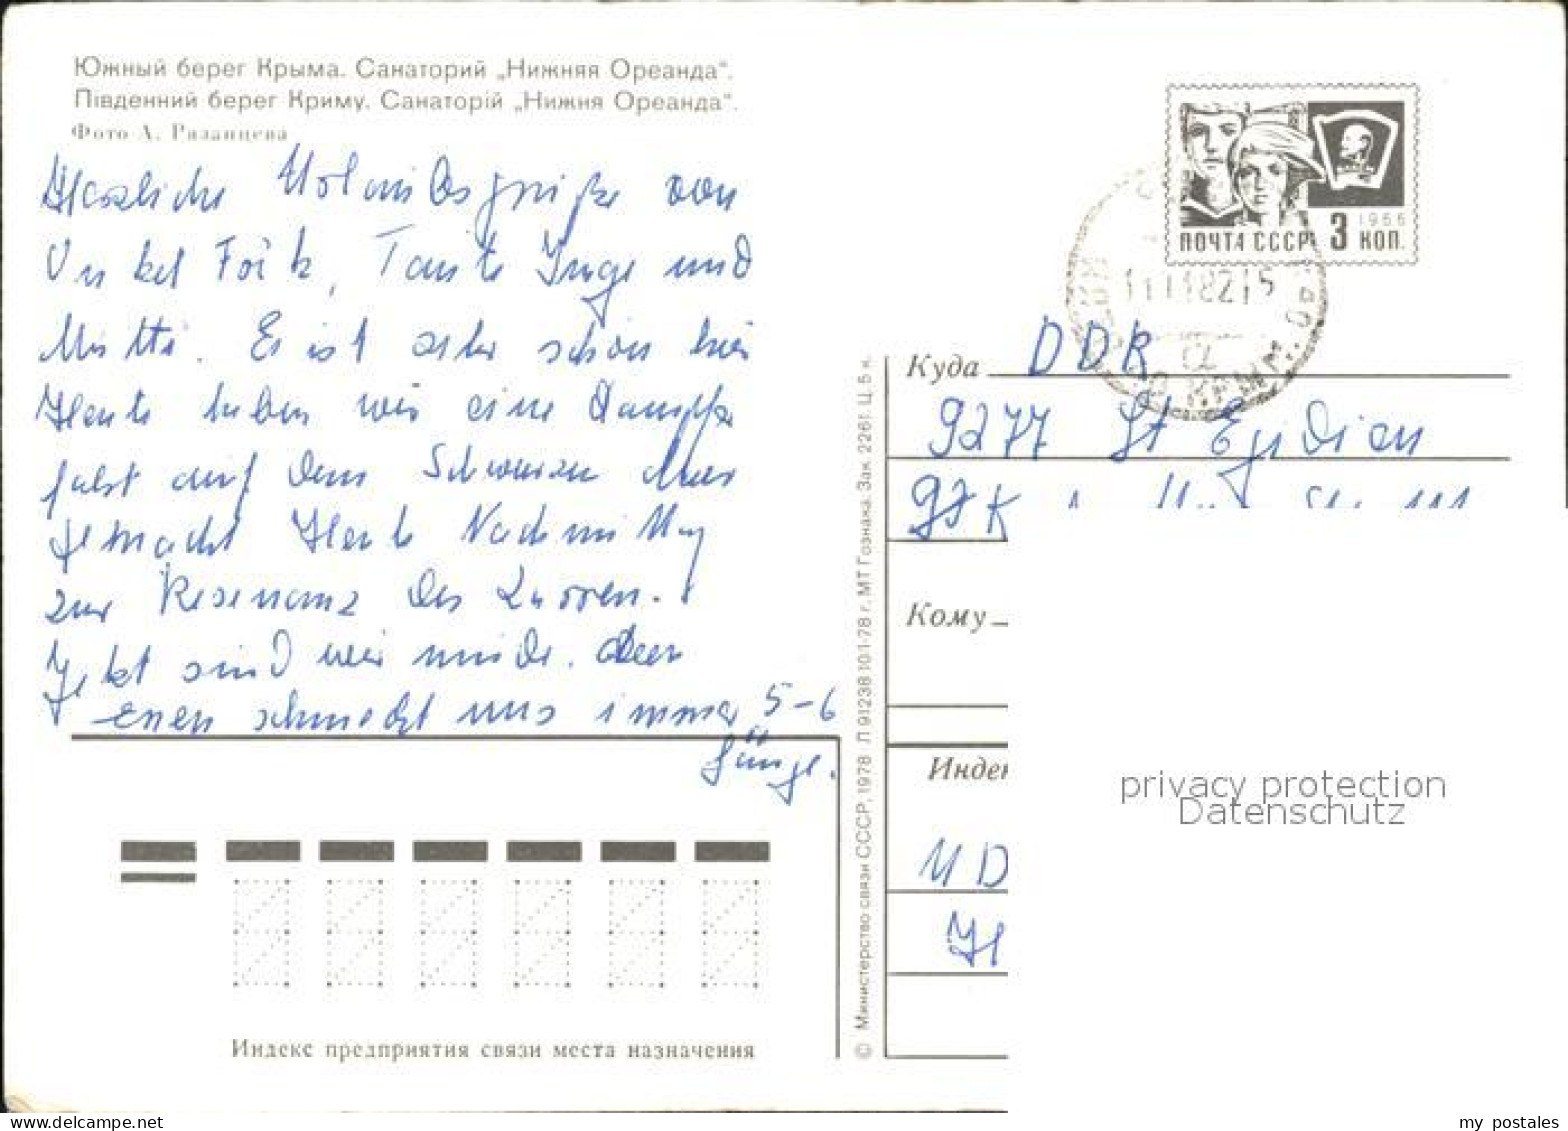 Южный берег Крыма. Санаторий „Нижняя Ореанда“.
Південний берег Криму. Санаторій „Нижня Ореанда“.
Фото А. Рязанцева
Herzliche Urlaubsgrüße von
Onkel Foik, Tante Inge und
Mutti. Es ist sehr schön hier
Heute haben wir eine Dampfer
fahrt auf dem Schwarzen Meer
gemacht Heute Nachmittag
zur Residenz des Zaren.
Jetzt sind wir müde. Das
Essen schmeckt uns immer 5-6
Gänge.
Индекс предприятия связи места назначения
© Министерство связи СССР, 1978 Л 91238 10-1-78 г. МТ Гознака. Зак. 2261. Ц. 5 к.
1966
ПОЧТА СССР 3 КОП.
Куда DDR
9277 St Egidien
Кому
Индек
privacy protection
Datenschutz
my postales